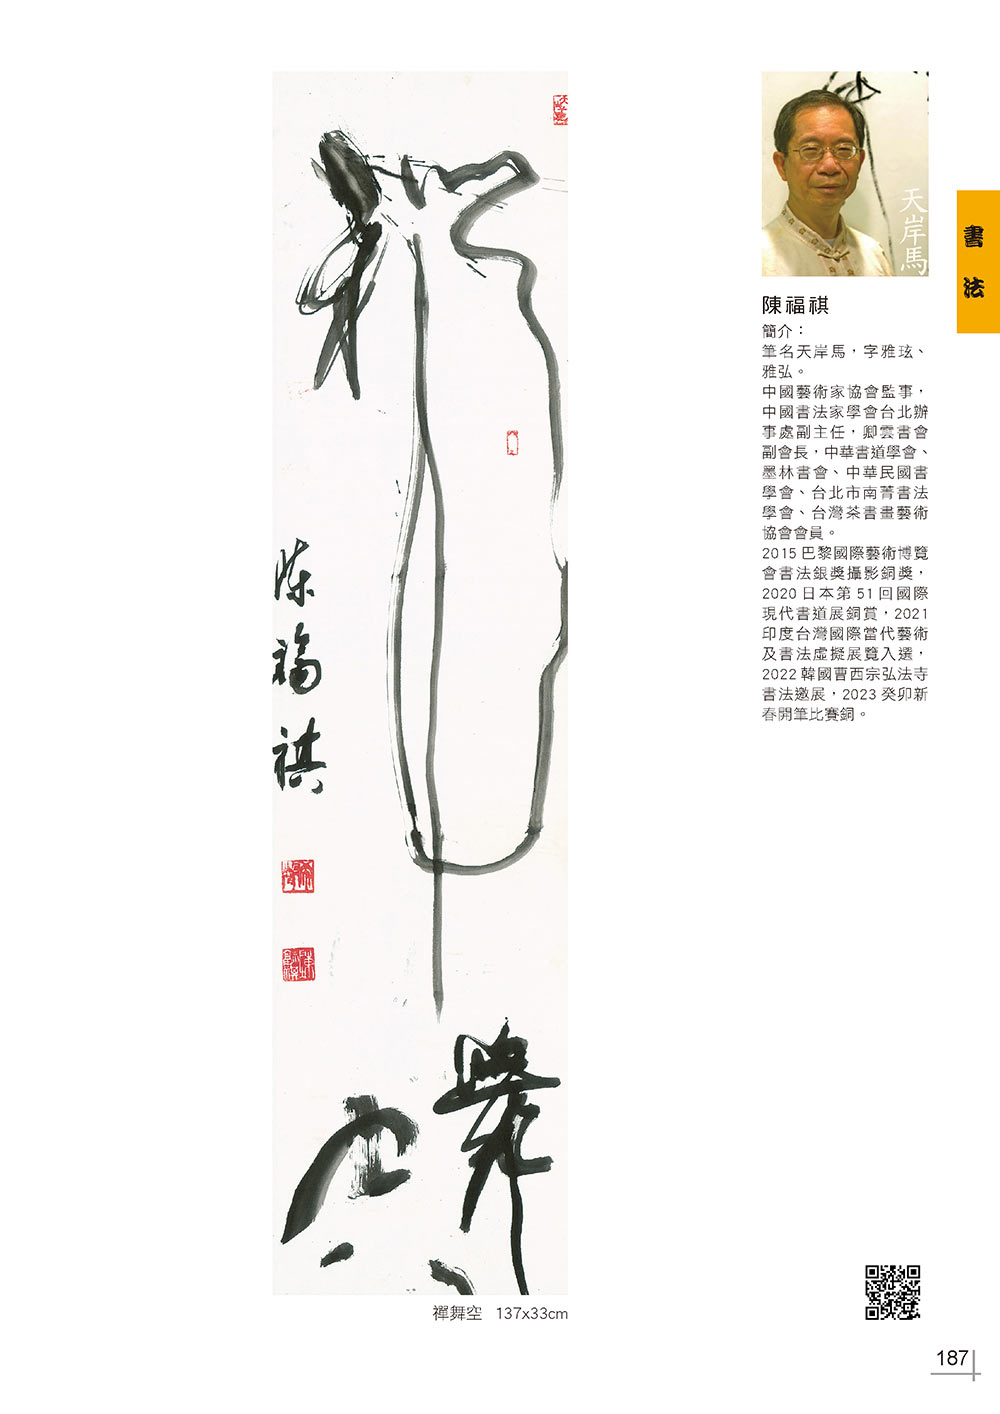 天岸馬
書法
陳福祺
簡介：
筆名天岸馬，字雅玹、
雅弘。
中國藝術家協會監事，
中國書法家學會台北辦
事處副主任，卿雲書會
副會長，中華書道學會、
墨林書會、中華民國書
學會、台北市南菁書法
學會、台灣茶書畫藝術
協會會員。
2015 巴黎國際藝術博覽
會書法銀獎攝影銅獎，
2020 日本第 51 回國際
現代書道展銅賞，2021
印度台灣國際當代藝術
及書法虛擬展覽入選，
2022 韓國曹西宗弘法寺
書法邀展，2023 癸卯新
春開筆比賽銅。
禪舞空
陳福祺
禪舞空 137x33cm
187